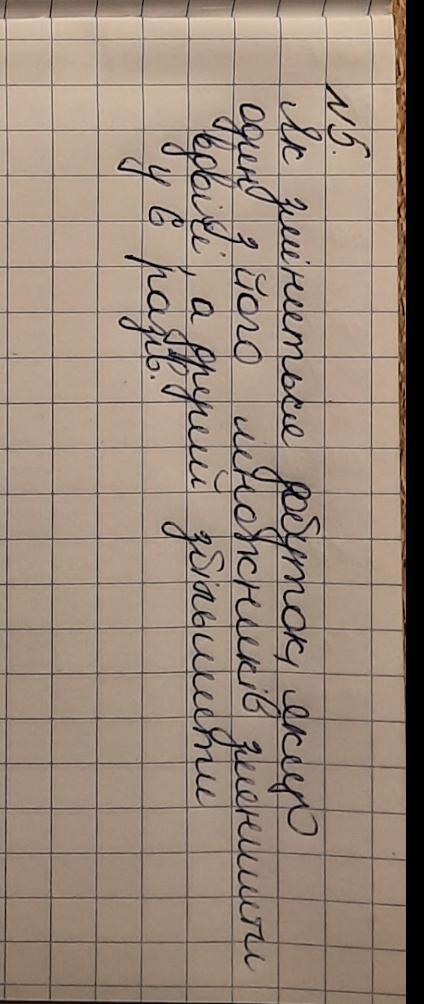 №5.
Як зміниться добуток, якщо
один з його множників зменшити
вдвічі, а другий збільшити
у 6 разів.